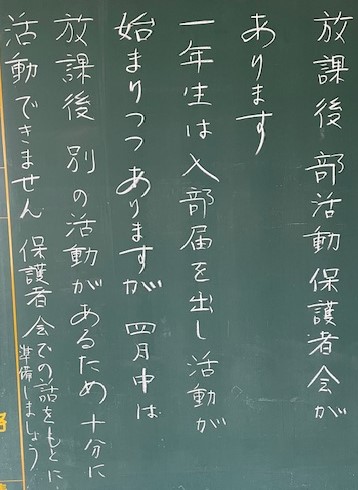 放課後 部活動保護者会が
あります
一年生は入部届を出し活動が
始まりつつありますが 四月中は
放課後 別の活動があるため 十分に
活動できません 保護者会での話をもとに
準備しましょう